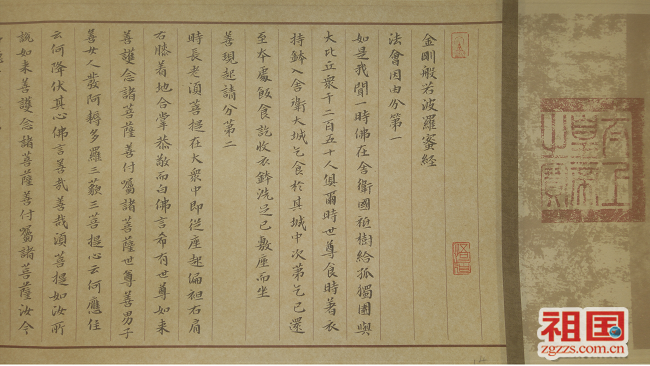 金剛般若波羅蜜經
法會因由分第一
如是我聞一時佛在舍衞國祇樹給孤獨園與
大比丘衆千二百五十人俱爾時世尊食時著衣
持鉢入舍衞大城乞食於其城中次第乞已還
至本處飯食訖收衣鉢洗足已敷座而坐
善現起請分第二
時長老須菩提在大衆中即從座起偏袒右肩
右膝着地合掌恭敬而白佛言希有世尊如来
善護念諸菩薩善付囑諸菩薩世尊善男子
善女人發阿耨多羅三藐三菩提心云何應住
云何降伏其心佛言善哉善哉須菩提如汝所
說如来善護念諸菩薩善付囑諸菩薩汝今
祖国
zgzzs.com.cn